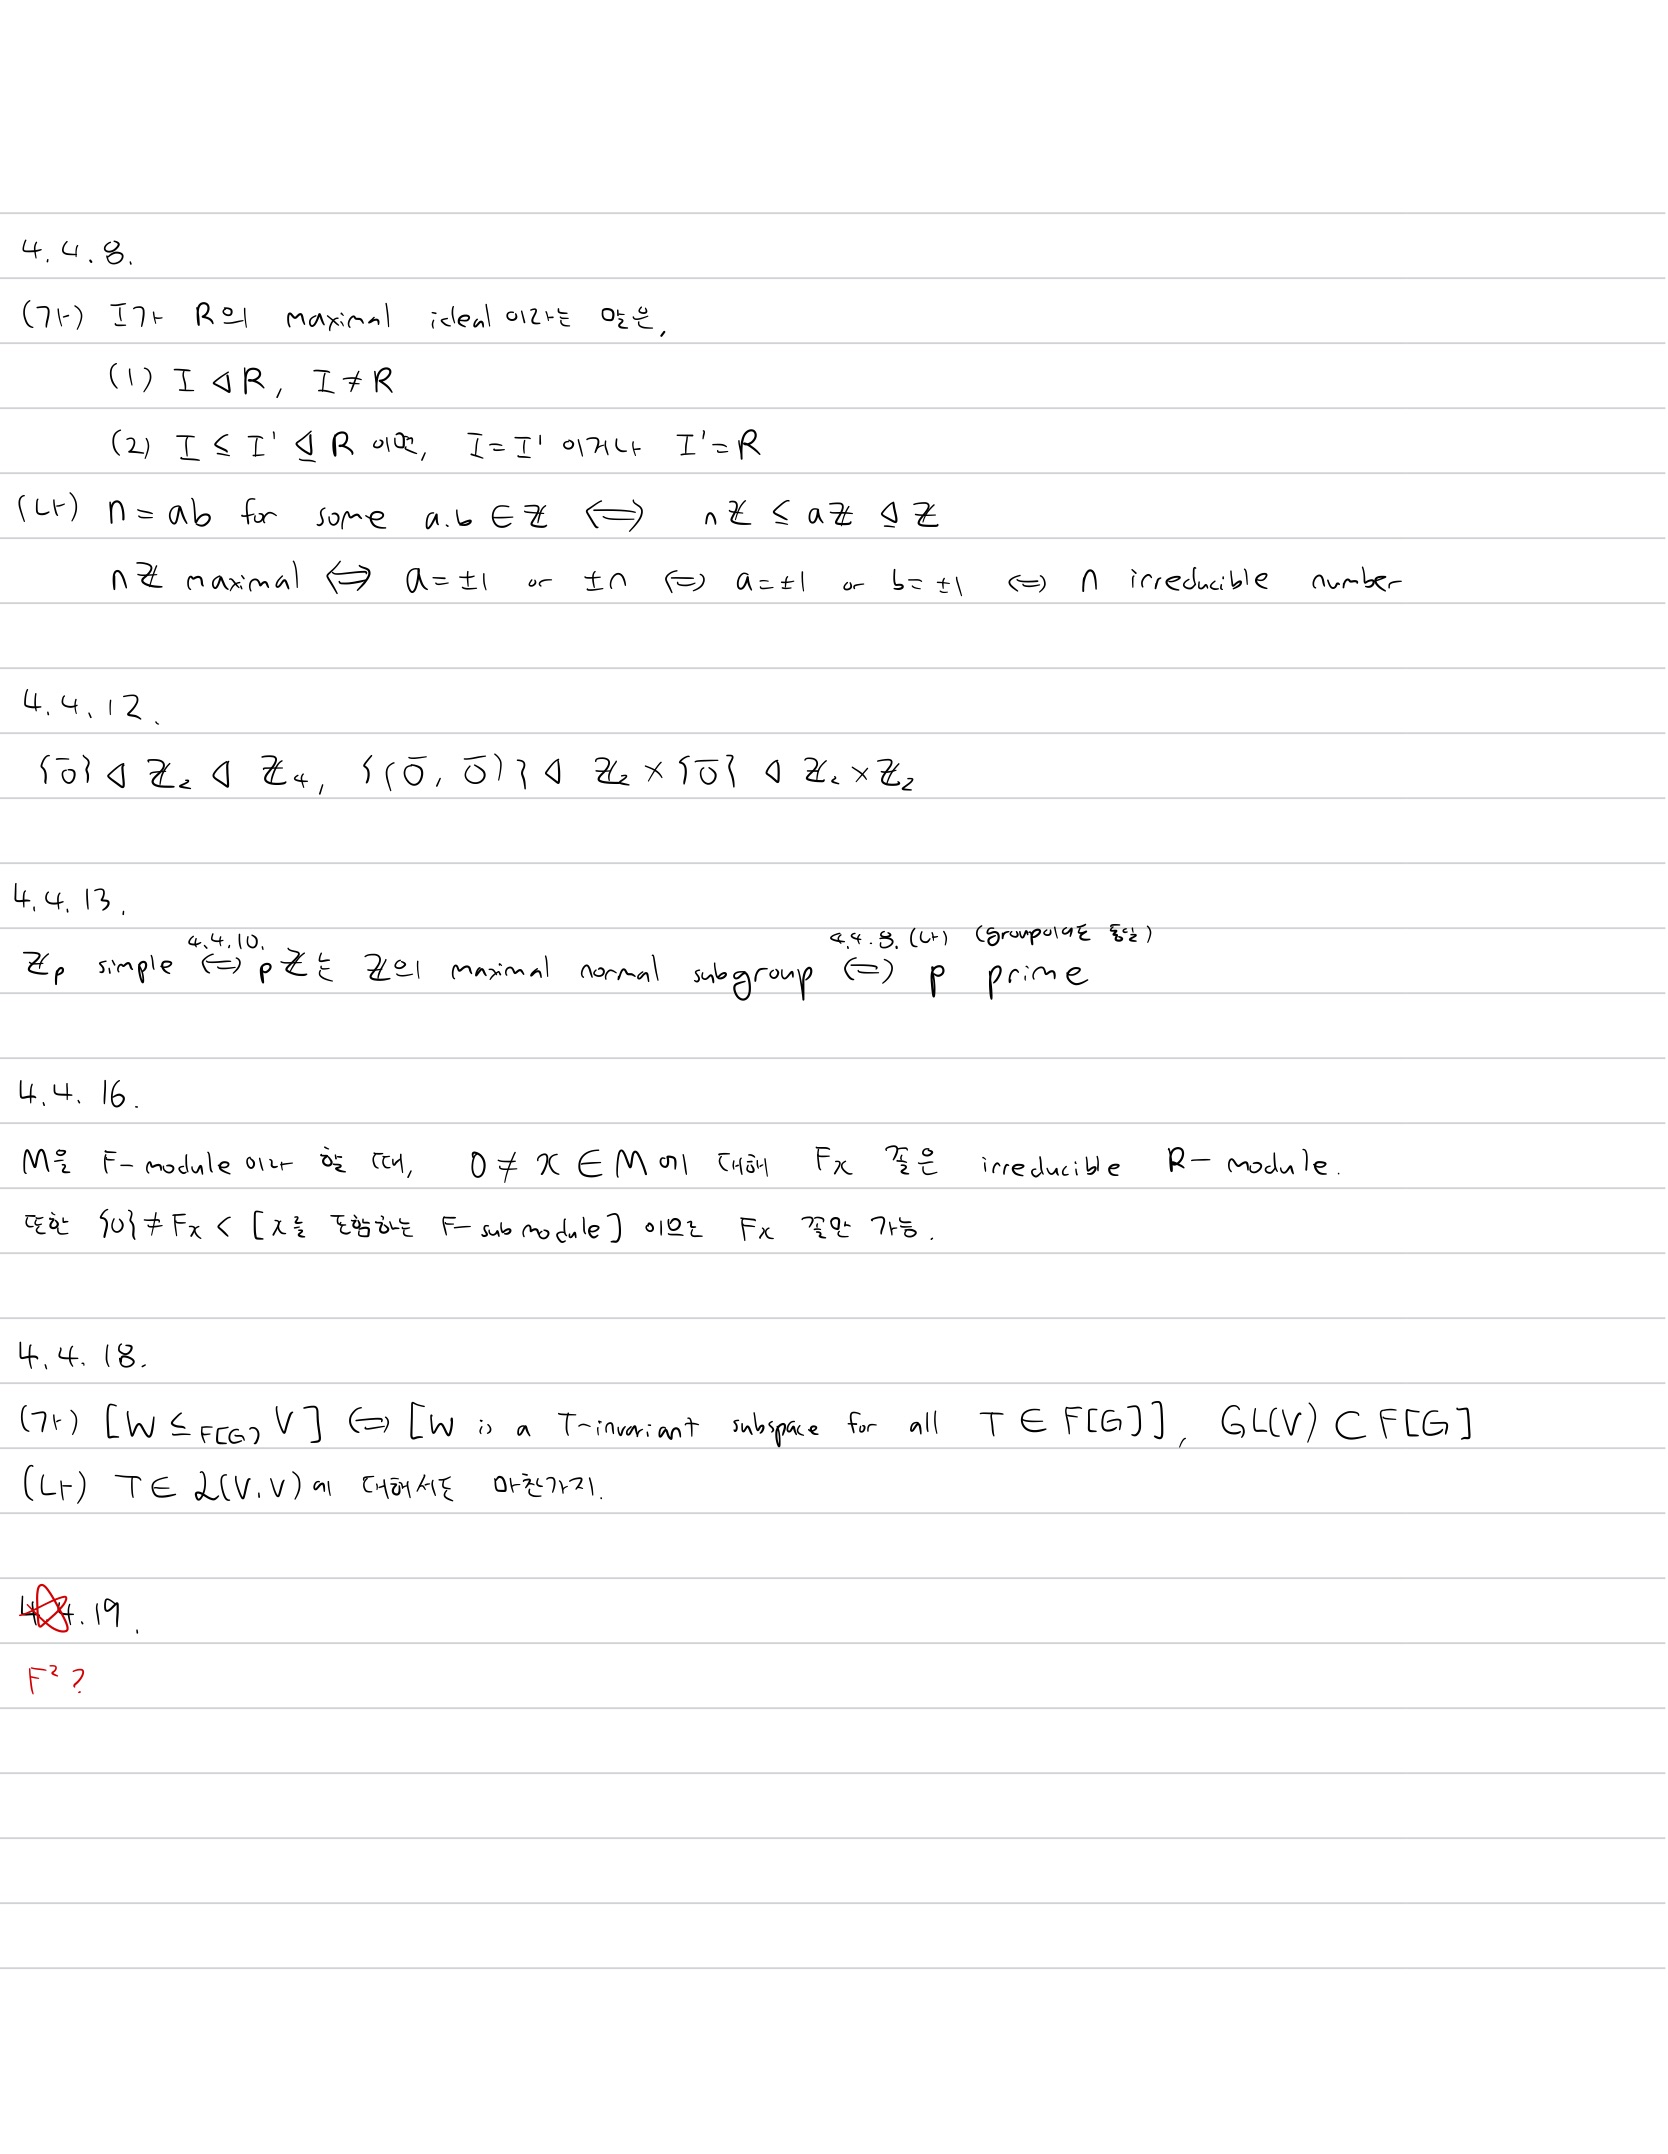 4.4.8.
(가) I가 R의 maximal ideal 이라는 말은,
(1) I ◁ R, I ≠ R
(2) I ≤ I' ⊴ R 이면, I = I' 이거나 I' = R
(나) n = ab for some a.b ∈ ℤ ⟺ nℤ ≤ aℤ ⊴ ℤ
nℤ maximal ⟺ a = ±1 or ±n ⟺ a = ±1 or b = ±1 ⟺ n irreducible number
4.4.12.
{0̄} ◁ ℤ₂ ◁ ℤ₄, {(0̄, 0̄)} ◁ ℤ₂ × {0̄} ◁ ℤ₂ × ℤ₂
4.4.13.
4.4.10. 4.4.8.(나) (group이어도 동일)
ℤₚ simple ⟺ pℤ는 ℤ의 maximal normal subgroup ⟺ p prime
4.4.16.
M을 F-module 이라 할 때, 0 ≠ x ∈ M 에 대해 Fx 꼴은 irreducible R-module.
또한 {0} ≠ Fx < [x를 포함하는 F-submodule] 이므로 Fx 꼴만 가능.
4.4.18.
(가) [W ≤_F[G] V] ⟺ [W is a T-invariant subspace for all T ∈ F[G]], GL(V) ⊂ F[G]
(나) T ∈ 𝓛(V.V)에 대해서도 마찬가지.
4.4.19.
F² ?